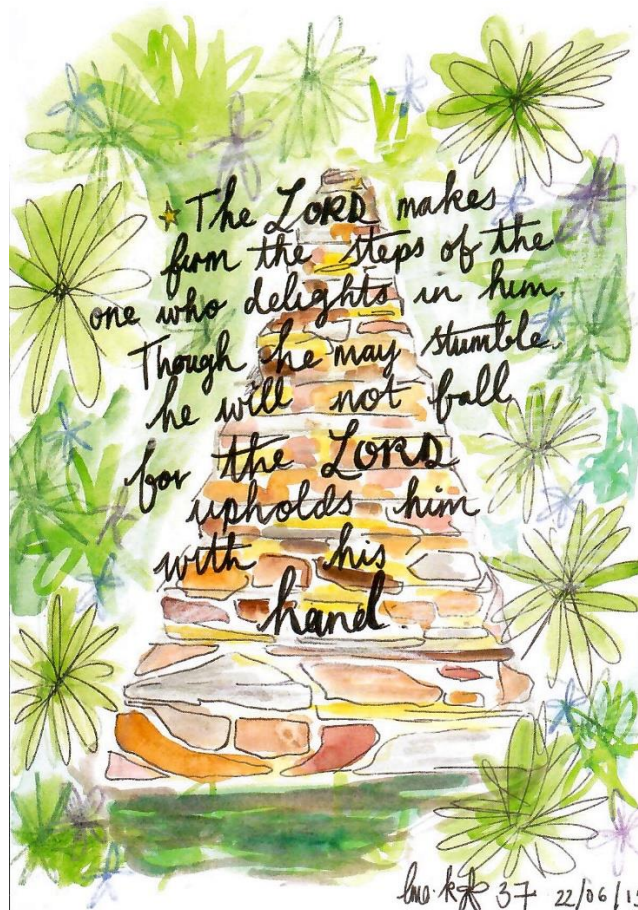 The LORD makes
firm the steps of the
one who delights in him.
Though he may stumble.
he will not fall,
for the LORD
upholds him
with his
hand.
37 22/06/15